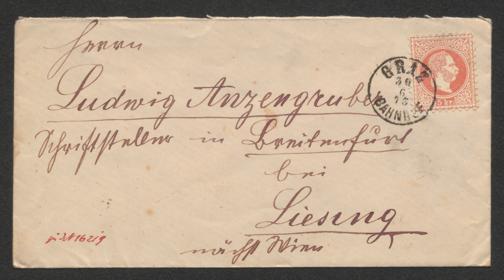 Herrn
Ludwig Anzengruber
Schriftsteller in Breitenfurt
bei
Liesing
nächst Wien
GRAZ
30
6
BAHNHOF